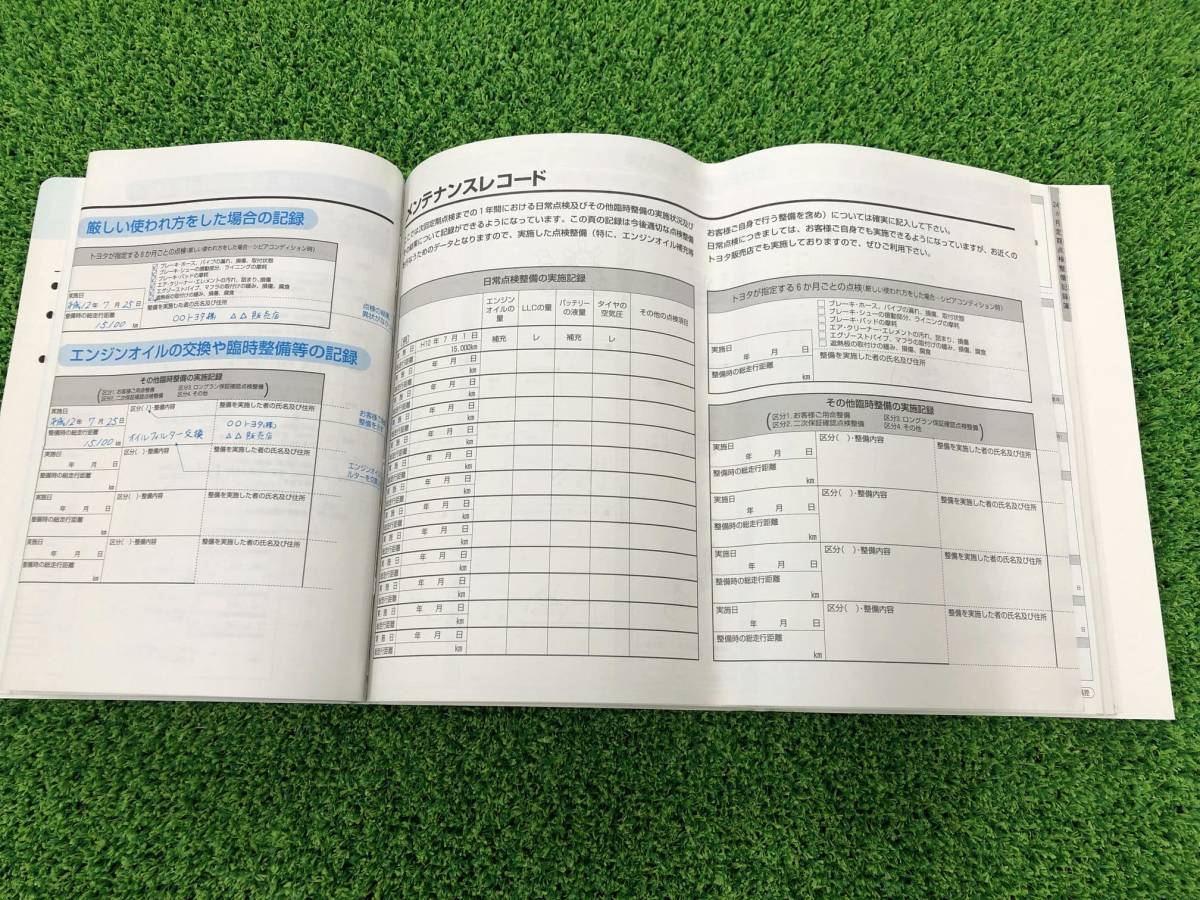 厳しい使われ方をした場合の記録
トヨタが指定する6か月ごとの点検(厳しい使われ方をした場合…シビアコンディション時)
ブレーキ・ホース、パイプの漏れ、損傷、取付状態
ブレーキ・シューの摺動部分、ライニングの摩耗
ブレーキ・パッドの摩耗
エア・クリーナー・エレメントの汚れ、詰まり、損傷
エグゾーストパイプ、マフラの取付けの緩み、損傷、腐食
遮熱板の取付けの緩み、損傷、腐食
実施日
平成12年 7月 25日
整備時の総走行距離
15100 km
整備を実施した者の氏名及び住所
○○トヨタ(株)
△△販売店
点検の結果
異状がな
エンジンオイルの交換や臨時整備等の記録
その他臨時整備の実施記録
区分1. お客様ご用命整備 区分3. ロングラン保証確認点検整備
区分2. 二次保証確認点検整備 区分4. その他
実施日 区分(1)・整備内容 整備を実施した者の氏名及び住所
平成12年 7月 25日
整備時の総走行距離
15100 km
オイルフィルター交換
○○トヨタ(株)
△△販売店
お客様ご用
整備を
エンジンオイ
ルターを交
実施日 区分( )・整備内容 整備を実施した者の氏名及び住所
年 月 日
整備時の総走行距離
km
実施日 区分( )・整備内容 整備を実施した者の氏名及び住所
年 月 日
整備時の総走行距離
km
実施日 区分( )・整備内容 整備を実施した者の氏名及び住所
年 月 日
整備時の総走行距離
km
メンテナンスレコード
ここでは次回定期点検までの1年間における日常点検及びその他臨時整備の実施状況及び
の結果について記録ができるようになっています。この頁の記録は今後適切な点検整備
を行なうためのデータとなりますので、実施した点検整備(特に、エンジンオイル補充等
お客様ご自身で行う整備を含め)については確実に記入して下さい。
日常点検につきましては、お客様ご自身でも実施できるようになっていますが、お近くの
トヨタ販売店でも実施しておりますので、ぜひご利用下さい。
日常点検整備の実施記録
エンジンオイルの量 LLCの量 バッテリーの液量 タイヤの空気圧 その他の点検項目
(例)
実施日 H10年 7月 1日 補充 レ 補充 レ
総走行距離 15,000km
実施日 年 月 日
総走行距離 km
実施日 年 月 日
総走行距離 km
実施日 年 月 日
総走行距離 km
実施日 年 月 日
総走行距離 km
実施日 年 月 日
総走行距離 km
実施日 年 月 日
総走行距離 km
実施日 年 月 日
総走行距離 km
実施日 年 月 日
総走行距離 km
実施日 年 月 日
総走行距離 km
実施日 年 月 日
総走行距離 km
実施日 年 月 日
総走行距離 km
トヨタが指定する6か月ごとの点検(厳しい使われ方をした場合…シビアコンディション時)
ブレーキ・ホース、パイプの漏れ、損傷、取付状態
ブレーキ・シューの摺動部分、ライニングの摩耗
ブレーキ・パッドの摩耗
エア・クリーナー・エレメントの汚れ、詰まり、損傷
エグゾーストパイプ、マフラの取付けの緩み、損傷、腐食
遮熱板の取付けの緩み、損傷、腐食
実施日
年 月 日
整備時の総走行距離
km
整備を実施した者の氏名及び住所
その他臨時整備の実施記録
区分1. お客様ご用命整備 区分3. ロングラン保証確認点検整備
区分2. 二次保証確認点検整備 区分4. その他
実施日 区分( )・整備内容 整備を実施した者の氏名及び住所
年 月 日
整備時の総走行距離
km
実施日 区分( )・整備内容 整備を実施した者の氏名及び住所
年 月 日
整備時の総走行距離
km
実施日 区分( )・整備内容 整備を実施した者の氏名及び住所
年 月 日
整備時の総走行距離
km
実施日 区分( )・整備内容 整備を実施した者の氏名及び住所
年 月 日
整備時の総走行距離
km
24か月定期点検整備記録簿